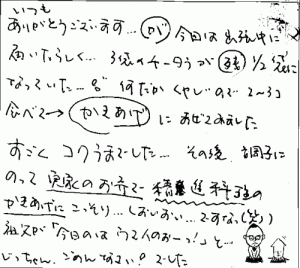 いつも
ありがとうございます… が 今回は 出張中に
届いたらしく… 3袋のチーちうが 残 1/2袋に
なっていた…!! 何だか くやしいので 2〜3コ
食べて→ かきあげ に あげてみました
すごく コクうまでした… その後、調子に
のって 実家のお弁で
かきあげに こっそり…(おいおい…ですな(笑))
祖父が「今日のは うまいのおーっ!」と…
じっちゃん ごめんなさい。でした